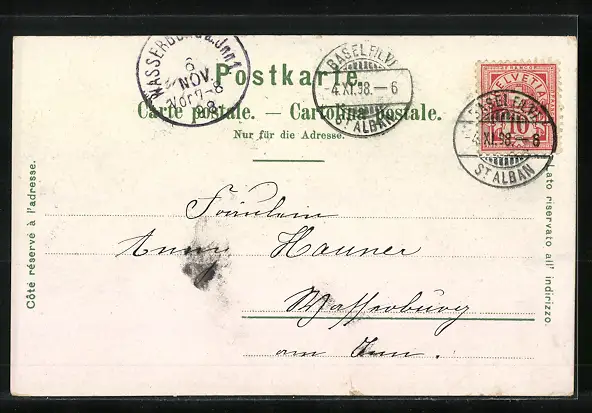 WASSERBURG a. Inn 1
6
NOV.
Vor 7-8
98
BASEL FIL. VI
-4.XI.98.-6
ST ALBAN
HELVETIA
10
BASEL FIL. VI
-4.XI.98.-6
ST ALBAN
Postkarte.
Carte postale. — Cartolina postale.
Nur für die Adresse.
Côté réservé à l'adresse.
Lato riservato all' indirizzo
Fräulein
Anna Hauner
Wasserburg
am Inn.